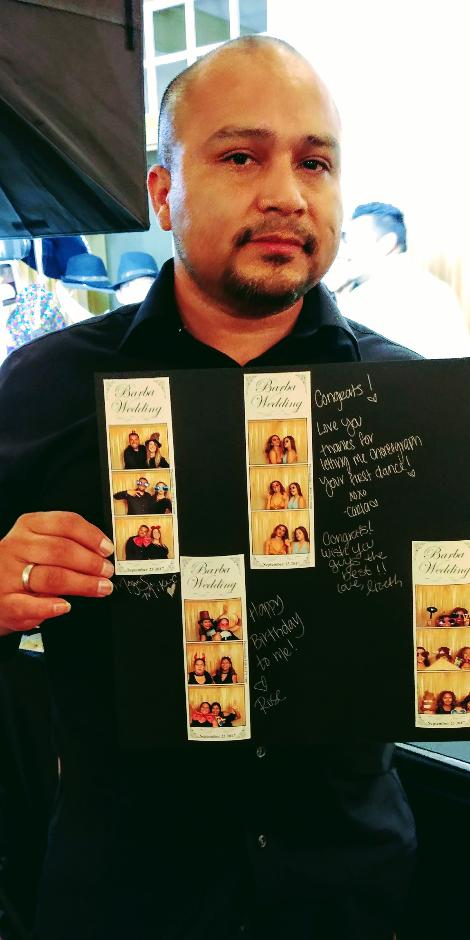 Barba
Wedding
September 23 2017
Barba
Wedding
September 23 2017
Congrats!
Love you
thanks for
letting me choreograph
your first dance!
xoxo
-Carla
Congrats!
wish you
guys the
best!!
Love,
Barba
Wedding
September 23 2017
Happy
Birthday
to me!
Rose
Barba
Wedding
September 23 2017